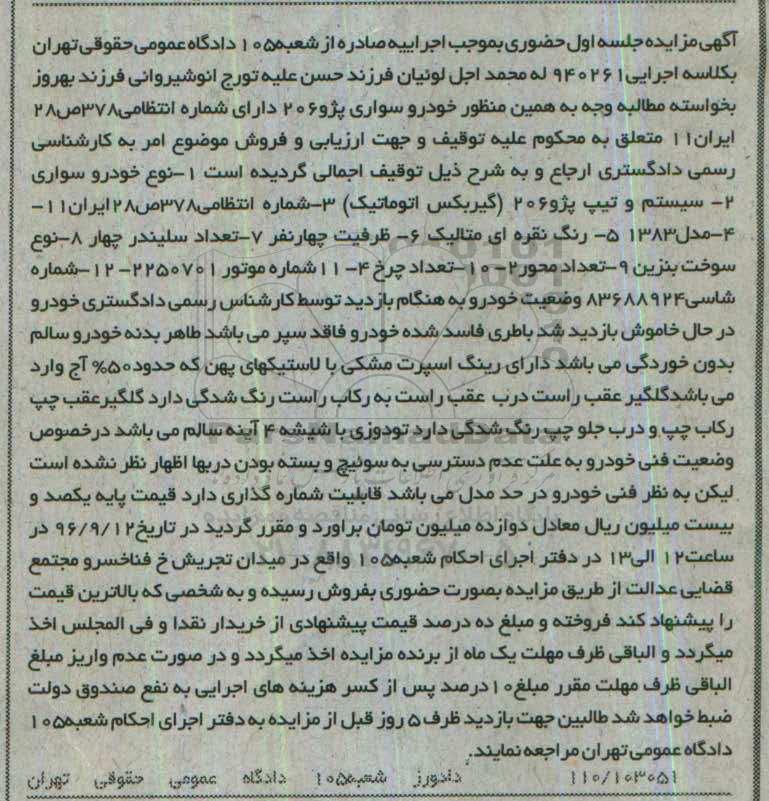 آگهی مزایده جلسه اول حضوری بموجب اجراییه صادره از شعبه ۱۰۵ دادگاه عمومی حقوقی تهران
بکلاسه اجرایی ۹۴۰۲۶۱ له محمد اجل لوئیان فرزند حسن علیه تورج انوشیروانی فرزند بهروز
بخواسته مطالبه وجه به همین منظور خودرو سواری پژو۲۰۶ دارای شماره انتظامی۳۷۸ص۲۸
ایران۱۱ متعلق به محکوم علیه توقیف و جهت ارزیابی و فروش موضوع امر به کارشناسی
رسمی دادگستری ارجاع و به شرح ذیل توقیف اجمالی گردیده است ۱-نوع خودرو سواری
۲- سیستم و تیپ پژو۲۰۶ (گیربکس اتوماتیک) ۳-شماره انتظامی۳۷۸ص۲۸ایران۱۱-
۴-مدل۱۳۸۳ ۵- رنگ نقره ای متالیک ۶- ظرفیت چهارنفر ۷-تعداد سلیندر چهار ۸-نوع
سوخت بنزین ۹-تعداد محور۲- ۱۰-تعداد چرخ ۴- ۱۱شماره موتور ۲۲۵۰۷۰۱- ۱۲-شماره
شاسی۸۳۶۸۸۹۲۴ وضعیت خودرو به هنگام بازدید توسط کارشناس رسمی دادگستری خودرو
در حال خاموش بازدید شد باطری فاسد شده خودرو فاقد سپر می باشد ظاهر بدنه خودرو سالم
بدون خوردگی می باشد دارای رینگ اسپرت مشکی با لاستیکهای پهن که حدود۵۰% آج وارد
می باشدگلگیر عقب راست درب عقب راست به رکاب راست رنگ شدگی دارد گلگیرعقب چپ
رکاب چپ و درب جلو چپ رنگ شدگی دارد تودوزی با شیشه ۴ آینه سالم می باشد درخصوص
وضعیت فنی خودرو به علت عدم دسترسی به سوئیچ و بسته بودن دربها اظهار نظر نشده است
لیکن به نظر فنی خودرو در حد مدل می باشد قابلیت شماره گذاری دارد قیمت پایه یکصد و
بیست میلیون ریال معادل دوازده میلیون تومان براورد و مقرر گردید در تاریخ۹۶/۹/۱۲ در
ساعت۱۲ الی۱۳ در دفتر اجرای احکام شعبه۱۰۵ واقع در میدان تجریش خ فناخسرو مجتمع
قضایی عدالت از طریق مزایده بصورت حضوری بفروش رسیده و به شخصی که بالاترین قیمت
را پیشنهاد کند فروخته و مبلغ ده درصد قیمت پیشنهادی از خریدار نقدا و فی المجلس اخذ
میگردد و الباقی ظرف مهلت یک ماه از برنده مزایده اخذ میگردد و در صورت عدم واریز مبلغ
الباقی ظرف مهلت مقرر مبلغ۱۰درصد پس از کسر هزینه های اجرایی به نفع صندوق دولت
ضبط خواهد شد طالبین جهت بازدید ظرف ۵ روز قبل از مزایده به دفتر اجرای احکام شعبه۱۰۵
دادگاه عمومی تهران مراجعه نمایند.
۱۱۰/۱۰۳۰۵۱ دادورز شعبه۱۰۵ دادگاه عمومی حقوقی تهران